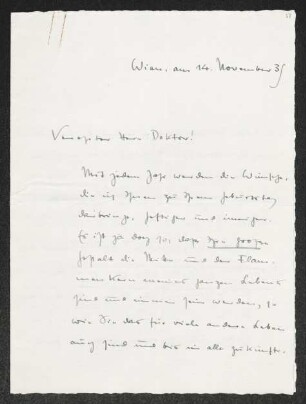 Wien, am 14. November 35
Verehrter Herr Doktor!
Mit jedem Jahr werden die Wünsche,
die ich Ihnen zu Ihrem Geburtstag
darbringe, heftiger und inniger.
Es ist ja doch so, dass Ihre grosse
Gestalt die Mitte und der
meines ganzen Lebens
sind und immer sein werden, so
wie Sie das für viele andere Leben
auch sind und bis in alle Zukunft